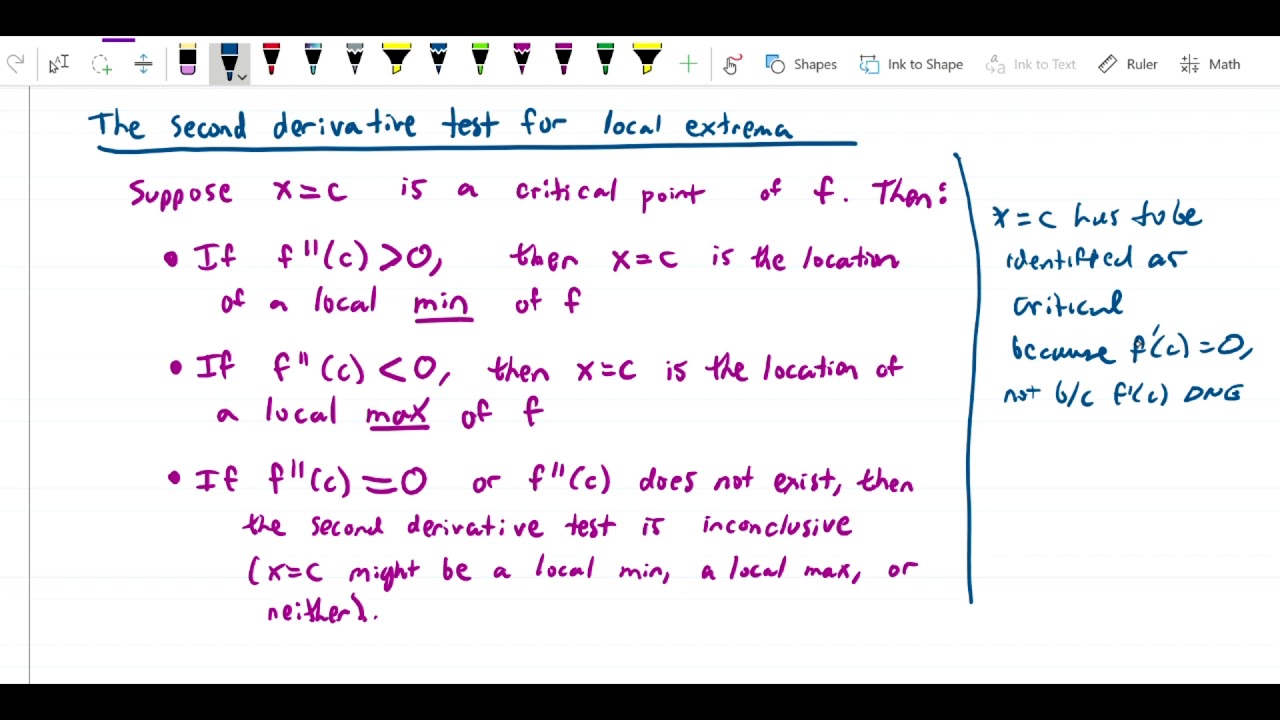 Shapes
Ink to Shape
Ink to Text
Ruler
Math
The second derivative test for local extrema
Suppose x=c is a critical point of f. Then:
• If f''(c) > 0, then x=c is the location
of a local min of f
• If f''(c) < 0, then x=c is the location of
a local max of f
• If f''(c) = 0 or f''(c) does not exist, then
the second derivative test is inconclusive
(x=c might be a local min, a local max, or
neither).
x=c has to be
identified as
critical
because f'(c) = 0,
not b/c f'(c) DNE